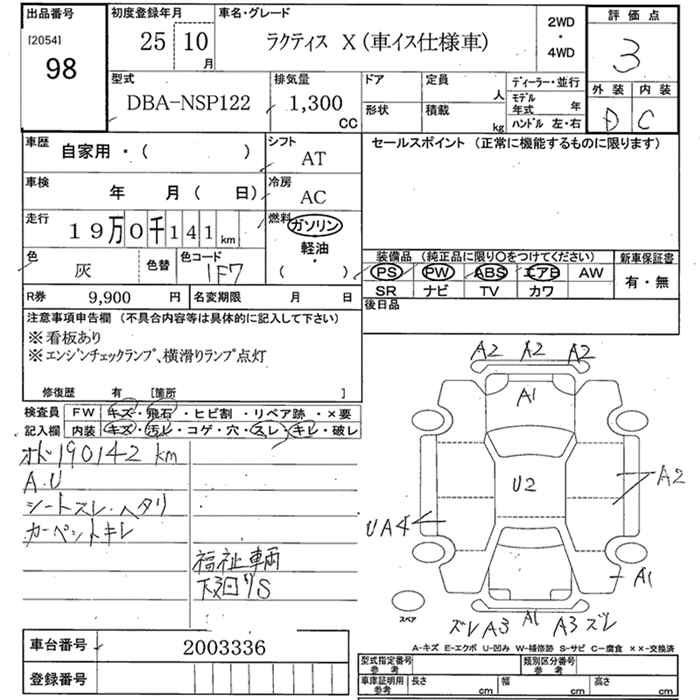 出品番号 初度登録年月 車名・グレード 2WD ・ 4WD 評価点
[2054] 98 25 10月 ラクティス X (車イス仕様車) 3
型式 排気量 ドア 定員 人 ディーラー・並行 外装 内装
DBA-NSP122 1,300 CC 形状 積載 kg モデル年式 年 ハンドル 左・右 D C
車歴 自家用・( ) シフト AT セールスポイント (正常に機能するものに限ります)
車検 年 月 ( 日) 冷房 AC
走行 19万0千141km 燃料 ガソリン 軽油・ ( )
色 灰 色替 色コード 1F7
装備品 (純正品に限り○をつけてください) 新車保証書
PS PW ABS エアB AW 有・無
SR ナビ TV カワ
R券 9,900 円 名変期限 月 日 後日品
注意事項申告欄 (不具合内容等は具体的に記入して下さい)
※看板あり
※エンジンチェックランプ、横滑りランプ点灯
修復歴 有 [箇所 ]
検査員 FW キズ・飛石・ヒビ割・リペア跡・×要
記入欄 内装 キズ・汚レ・コゲ・穴・スレ・キレ・破レ
オド190142km
A.U
シートスレ・ヘタリ
カーペットキレ
福祉車両
A2 A2 A2
A1
U2 A2
UA4
A1
スペア
ズレ A3 A1 A3 ズレ
A-キズ E-エクボ U-凹み W-補修跡 S-サビ C-腐食 ××-交換済
車台番号 2003336
登録番号
型式指定番号 参考 類別区分番号 参考
車庫証明用 参考 長さ cm 幅 cm 高さ cm